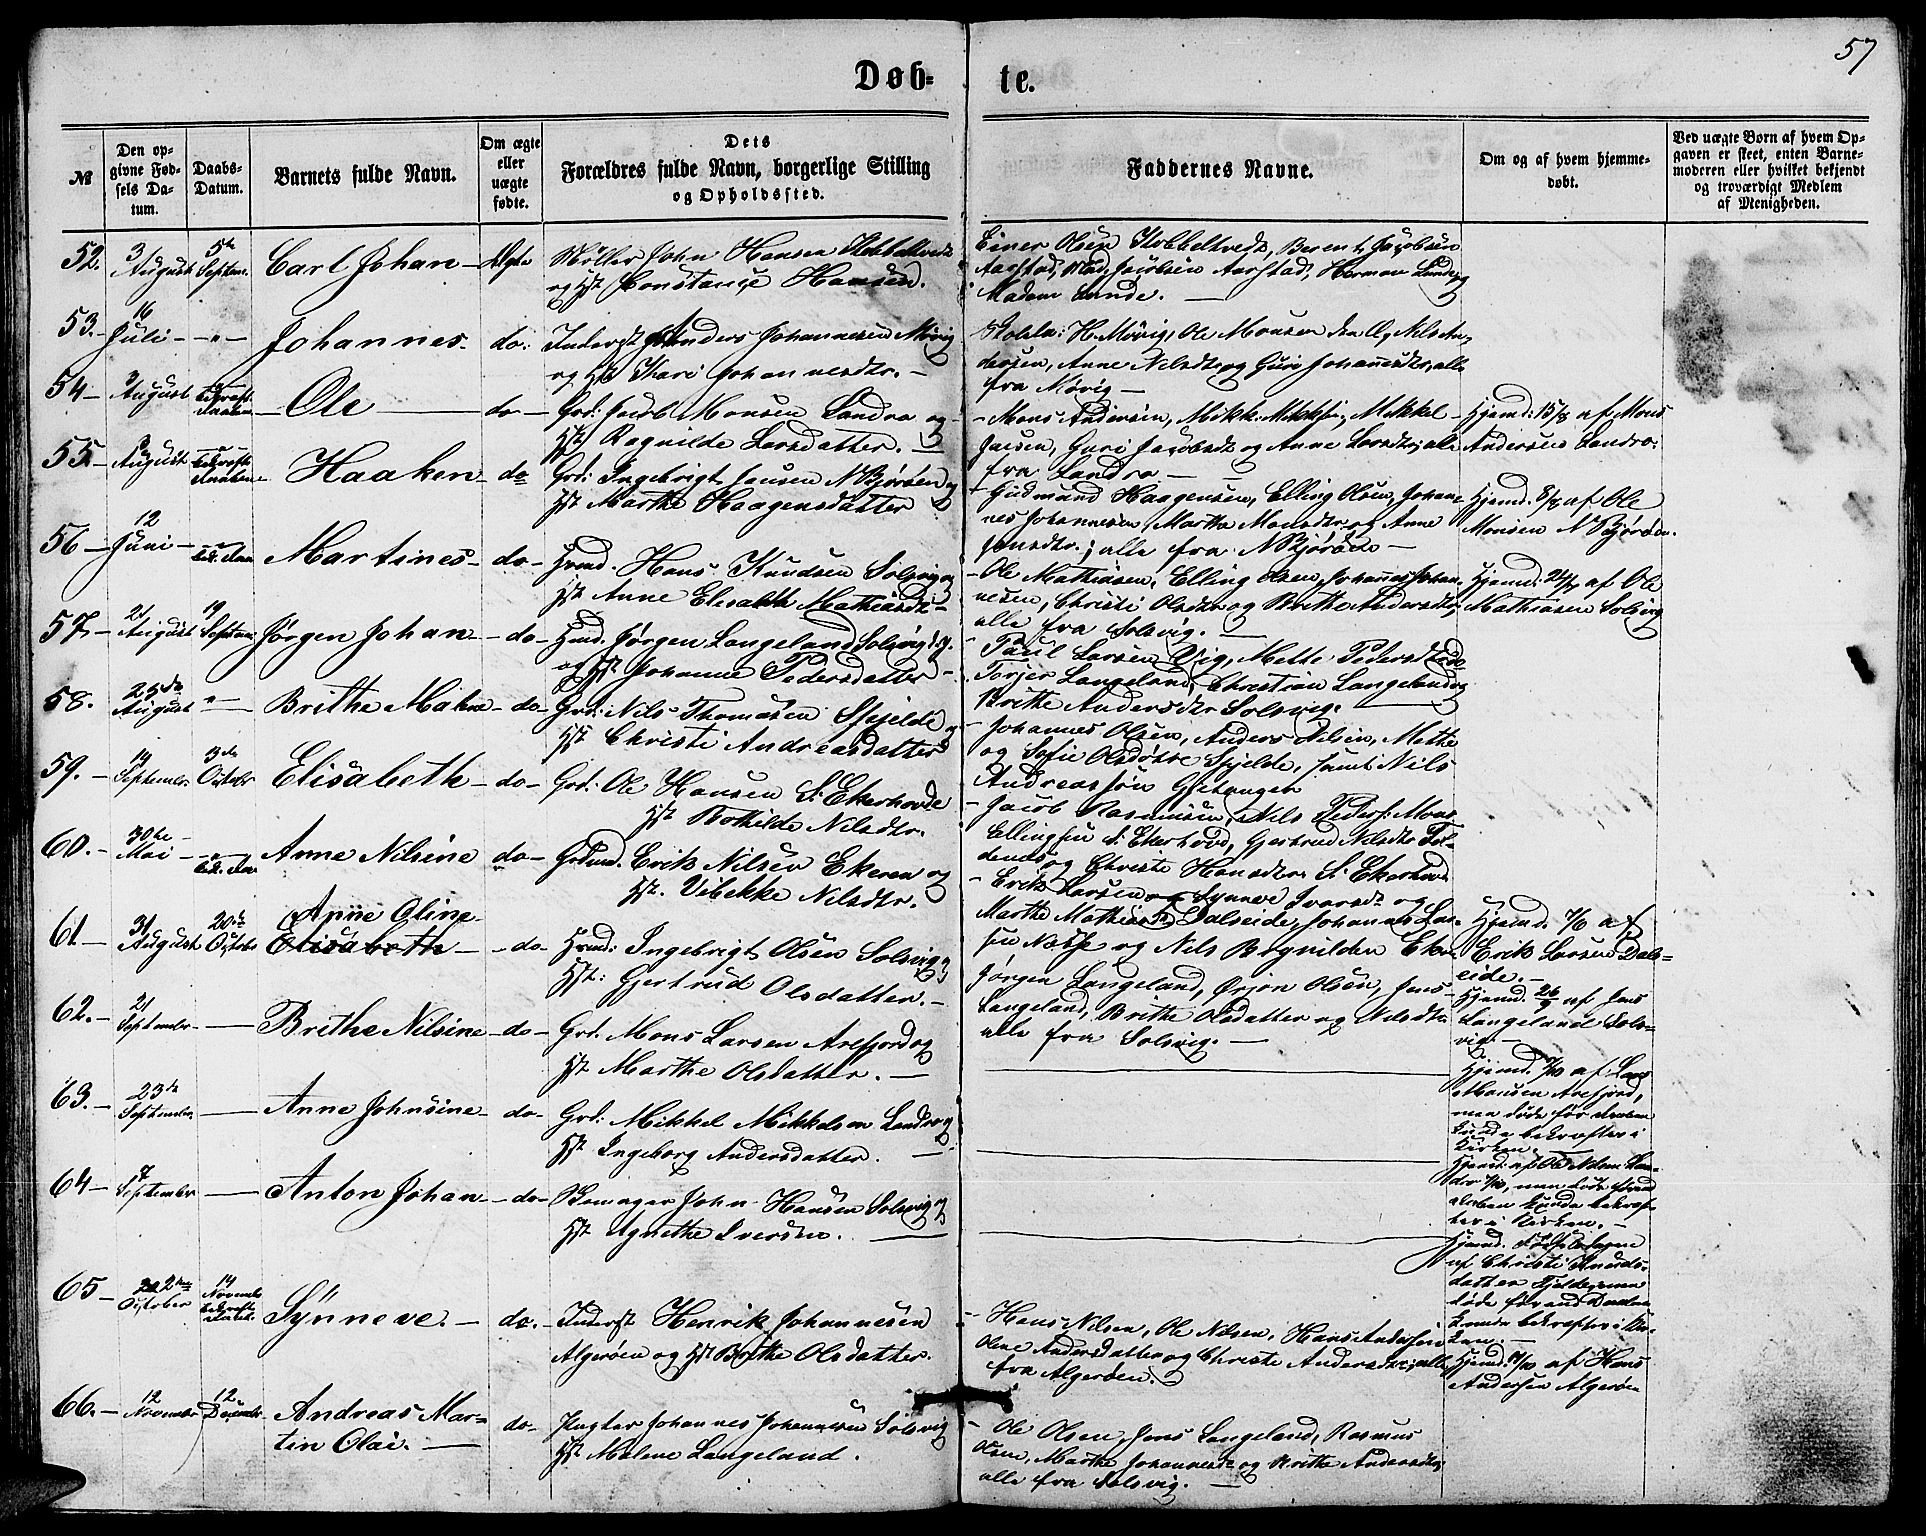 57
Døb- te.
№
Den op-
givne Fød-
sels Da-
tum.
Daabs-
Datum.
Barnets fulde Navn.
Om ægte
eller
uægte
fødte.
Dets
Forældres fulde Navn, borgerlige Stilling
og Opholdssted.
Faddernes Navne.
Om og af hvem hjemme-
døbt.
Ved uægte Børn af hvem Op-
gaven er skeet, enten Barne-
moderen eller hvilket bekjendt
og troværdigt Medlem
af Menigheden.
52. 3/ August 5te Septem. Carl Johan Ægte
Møller John Hansen
og Hst Constance Hansen.
Einer Olsen Kobbeltvedt, Berent Jacobsen
Aarstad, Mad. Jacobsen Aarstad, Herman Lunde og
Madam Lunde. —
53. 16 Juli — " — Johannes do:
Inderst Anders Johannesen Møvig
og Hst Kari Johannesdtr. —
H. Møvig, Ole Monsen den Æ, Nils An-
dersen, Anne Nilsdtr og Guri Johannesdtr, alle
fra Møvig —
54 — 3 August Ole — do —
Grd: Jacob Monsen Landro og
Hst Ragnilde Larsdatter. —
— Mons Andersen, Mikk. Mikks., Mikkel
Jansen, Guri Jacobsdt og Anne Larsdtr, alle
fra Landro —
Hjemd: 15/8 af Mons
Andersen Landro.
55 — August Haaken — do
Grd: Ingebrigt Jansen N Bjørøen og
Hst Marthe Haagensdatter
— Gudmund Haagensen, Elling Olsen, Johan-
nes Johannesen, Marthe Monsdtr og Anne
Jansdtr.; alle fra N Bjørøen —
Hjemd. 8/8 af Ole
Monsen N Bjørøen.
56 — 12 Juni — Martines — do —
Hmd. Hans Knudsen Solsvig og
Hst Anne Elisabeth Mathiasdt —
— Ole Mathiasen, Elling Olsen, Johannes Johan-
nesen, Christi Olsdtr og Brithe Andersdtr,
alle fra Solsvig. —
Hjemd: 24/7 af Ole
Mathiasen Solsvig
57 — 21 August 19 Septem Jørgen Johan — do —
Hmd. Jørgen Langeland Solsvig
og Hst Johanne Pedersdatter —
— Paul Larsen Vig, Mette Pedersdtr
Torjer Langeland, Christian Langeland og
Brithe Andersdtr Solsvig. —
58. 25de August " — Brithe Malene — do —
Grd: Nils Thomasen Skjelde og
Hst Christi Andreasdatter
— Johannes Olsen, Anders Nilsen, Methe
og Sofie Olsdøttre Skjelde, samt Nils
Andreassøn
59. — 19 September 3de October Elisabeth — do —
Grd: Ole Hansen S: Ekerhovde
Hst Bothilde Nilsdtr.
— Jacob Rasmusen, Nils Peders. Mons
Ellingsen S: Ekerhovd, Gjertrud Nilsdtr
og Christe Hansdtr S: Ekerhovd
60. — 30te Mai — Anne Nilsine do —
Erik Nilsen Ekeren og
Hst. Vibekke Nilsdtr.
— Erik Larsen og Synneve Ivarsdt og
Marthe Mathiasdt Dalseide, Johannes Lar-
sen Næsse og Nils Ekeren
Hjemd. 7/6 af
Erik Larsen Dals-
eide. —
61 — 31 August 20de Octobr Anne Oline
Elisabeth — — do —
Hmd: Ingebrigt Olsen Solsvig og
Hst: Gjertrud Olsdatter. —
Jørgen Langeland, Ørjan Olsen, Jens
Langeland, Brithe Olsdatter og Nilsdtr
alle fra Solsvig. —
Hjemd. 26/9 af Jens
Langeland Sols-
vig. —
62. — 21 September — Brithe Nilsine — do —
Grd: Mons Larsen Arefjord og
Hst Marthe Olsdatter. —
Hjemd. 7/10 af Lars
Monsen Arefjord,
men døde før Daaben
kunde bekræftes i
Kirken. —
63. — 23de September — Anne Johnsine — do —
Grd: Mikkel Mikkelsen Landro og
Hst Ingeborg Andersdatter. —
Hjemd: af Ole Nilsen Lan-
dro 7/10, men døde førend
Daaben kunde bekræf-
tes i Kirken. —
64 — 7 September — Anton Johan — do —
John Hansen Solsvig og
Hst Agnethe Iversen. —
Hjemd. Fødselsdagen
af Christi Knuds-
datter
døde førend Daaben
kunde bekræftes i Kir-
ken. —
65 — 2den October 14 November Synneve. — do. —
Inderst Henrik Johannesen
Algerøen og Hst Brithe Olsdatter.
— Hans Nilsen, Ole Nilsen, Hans Andersen
Oline Andersdatter og Christe Andersdtr; alle
fra Algerøen.
Hjemd. /10 af Hans
Andersen Algerøen
66. — 12 November 12 December Andreas Mar-
tin Olai. — do —
Pagter Johannes Johannesen Solsvig
Hst Malene Langeland.
— Ole Olsen, Jens Langeland, Rasmus
Olsen, Marthe Johannesdt og Brithe Andersdtr,
alle fra Solsvig. —